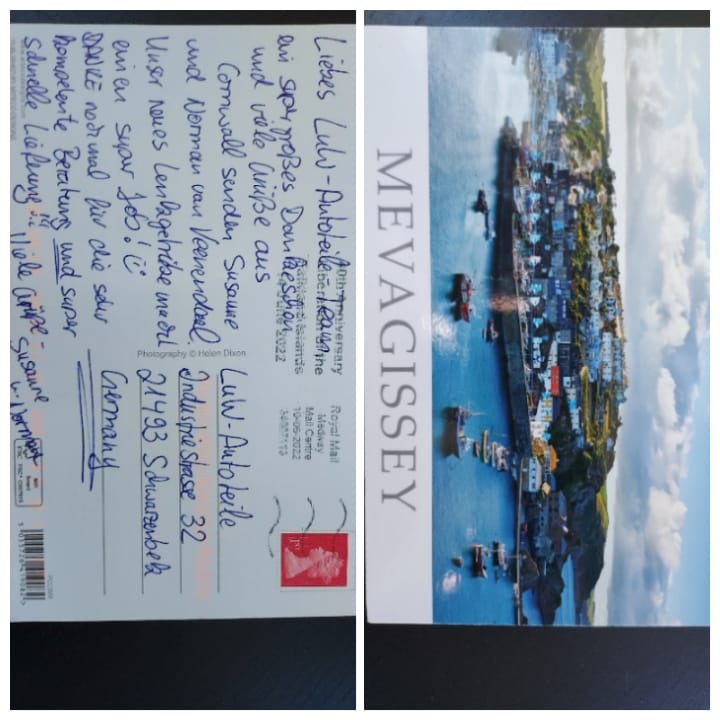 Liebes LuW-Autoteile-Team
ein super großes Dankeschön
und viele Grüße aus
Cornwall senden Susanne
und Norman van Veenendaal.
Unser neues Lenkgetriebe macht
einen super Job!
DANKE nochmal für die sehr
kompetente Beratung und super
schnelle Lieferung!!
Viele Grüße
Susanne
u. Norman
Anniversary
Falkland Islands
June 2022
Royal Mail
Medway
Mail Centre
10-06-2022
1st
Photography © Helen Dixon
LuW-Autoteile
Industriestrase 32
21493 Schwarzenbek
Germany
MEVAGISSEY